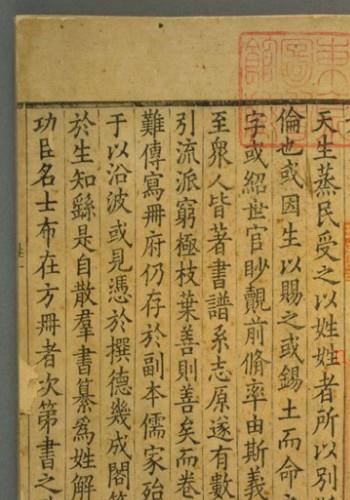 東
圖
館
天生蒸民受之以姓姓者所以別
倫也或因生以賜之或錫土而命
字或紹世官眇覿前脩率由斯義
至衆人皆著書譜系志原遂有數
引流派窮極枝葉善則善矣而卷
難傳寫冊府仍存於副本儒家殆
于以沿波或見憑於撰德幾成閣
於生知繇是自散羣書纂爲姓解
功臣名士布在方冊者次第書之